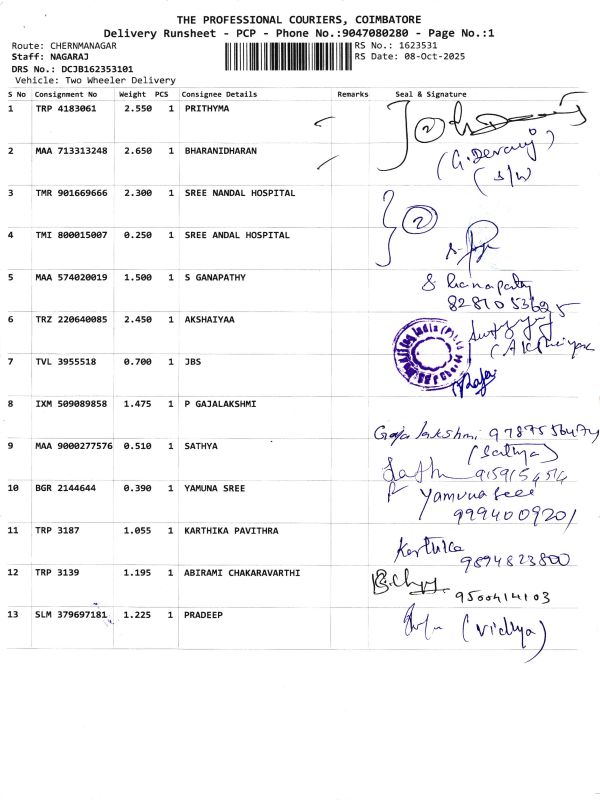 THE PROFESSIONAL COURIERS, COIMBATORE
Delivery Runsheet - PCP - Phone No.:9047080280 - Page No.:1
Route: CHERNMANAGAR
RS No.: 1623531
Staff: NAGARAJ
RS Date: 08-Oct-2025
DRS No.: DCJB162353101
Vehicle: Two Wheeler Delivery
S No Consignment No Weight PCS Consignee Details Remarks Seal & Signature
1 TRP 4183061 2.550 1 PRITHYMA 2
(G. Devaraj)
2 MAA 713313248 2.650 1 BHARANIDHARAN (S/W)
3 TMR 901669666 2.300 1 SREE NANDAL HOSPITAL 2
4 TMI 800015007 0.250 1 SREE ANDAL HOSPITAL
5 MAA 574020019 1.500 1 S GANAPATHY S Ganapathy
6 TRZ 220640085 2.450 1 AKSHAIYAA
7 TVL 3955518 0.700 1 JBS Raja
8 IXM 509089858 1.475 1 P GAJALAKSHMI Gaja lakshmi
9 MAA 9000277576 0.510 1 SATHYA (Sathya)
9159154514
10 BGR 2144644 0.390 1 YAMUNA SREE Yamuna Sree
9994009201
11 TRP 3187 1.055 1 KARTHIKA PAVITHRA Karthika
9894823800
12 TRP 3139 1.195 1 ABIRAMI CHAKARAVARTHI
9500414103
13 SLM 379697181 1.225 1 PRADEEP (Vidhya)